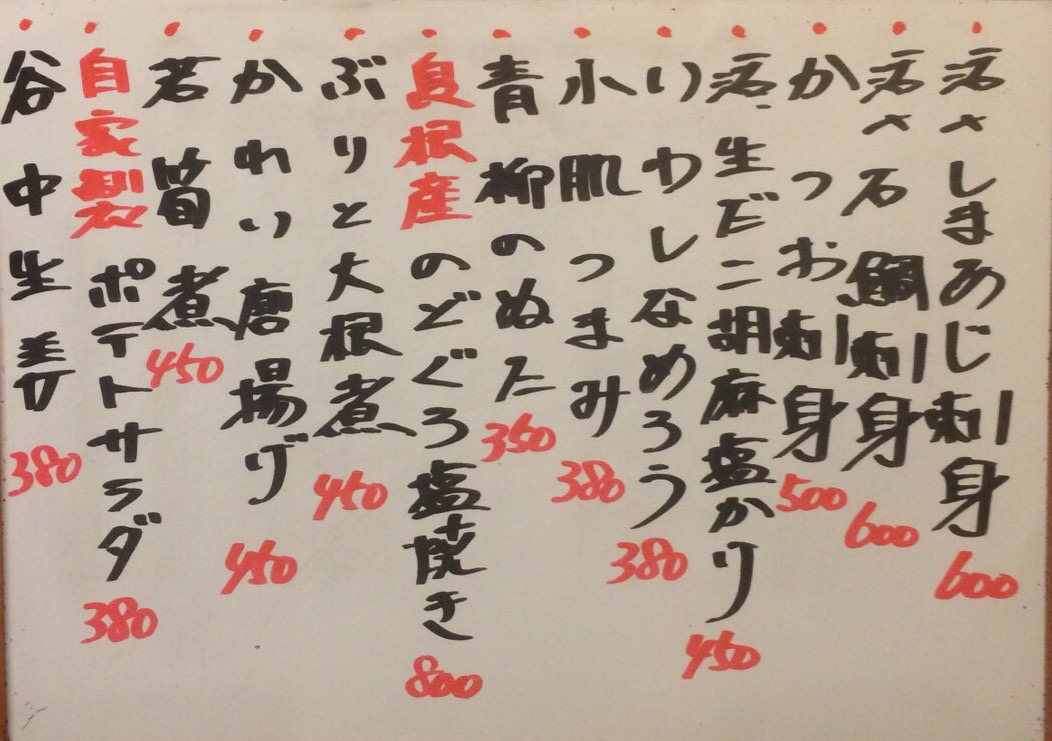 活〆しまあじ刺身 600
活〆石鯛刺身 600
かつお刺身 500
活生だこ胡麻塩かり 450
いわしなめろう 380
小肌つまみ 380
青柳のぬた 350
島根産のどぐろ塩焼き 800
ぶりと大根煮 450
かれい唐揚げ 450
若筍煮 450
自家製ポテトサラダ 380
谷中生姜 380